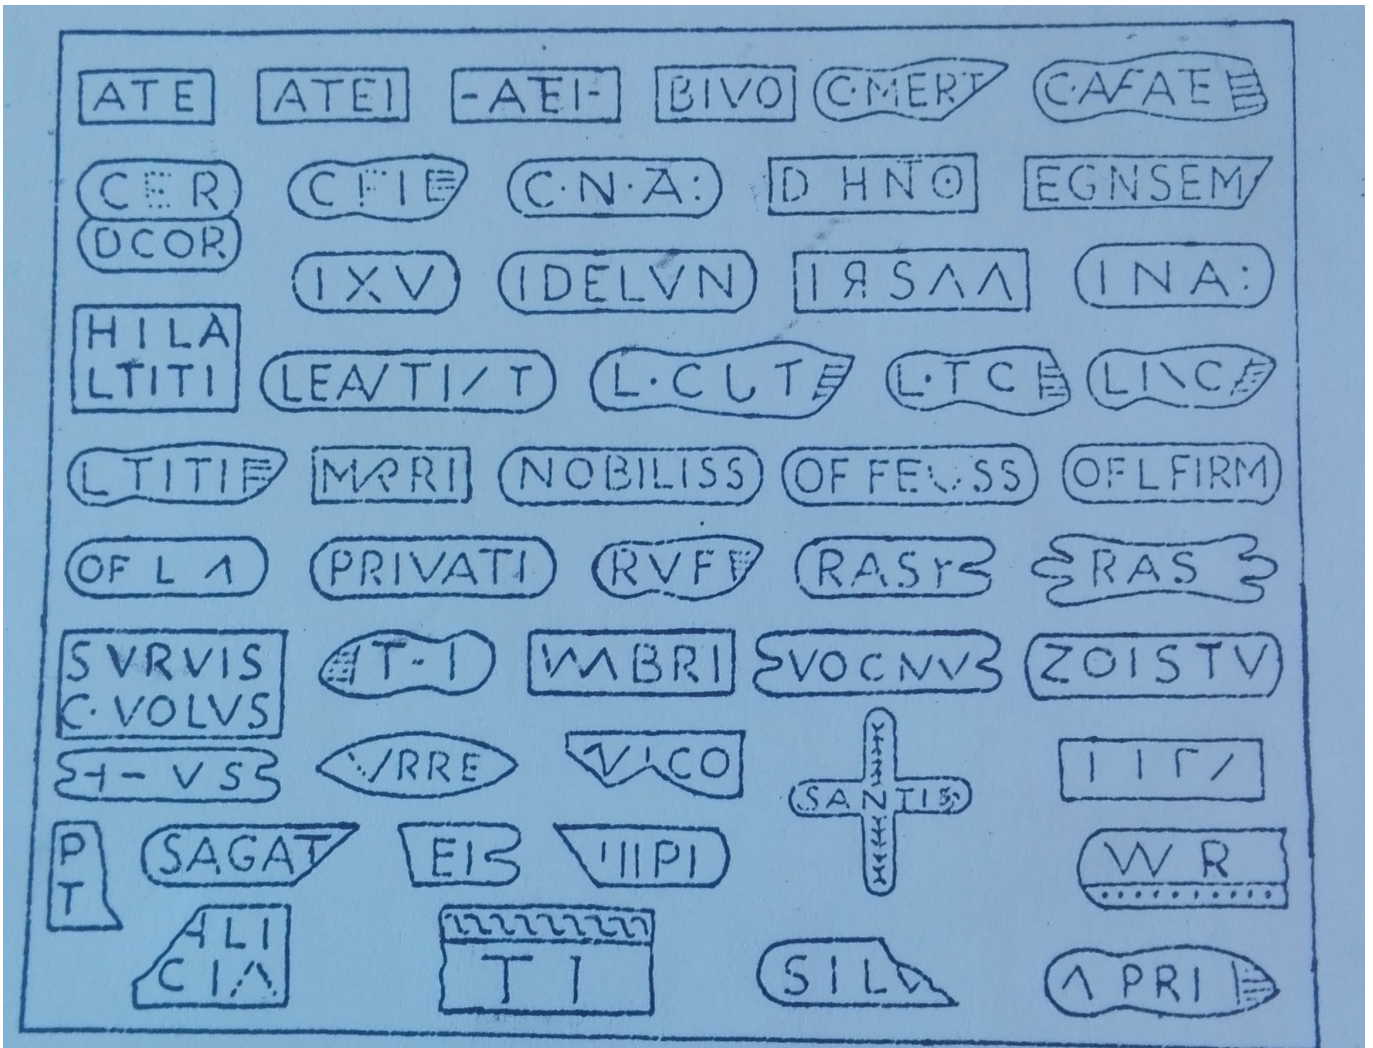 ATE
ATEI
-ATEI-
BIVO
C·MERT
C·AFATE
CER
DCOR
C·N·A:
D HNO
EGNSEM
IXV
IDELVN
IЯSΛΛ
INA:
HILA
LTITI
L·CUT
L·TC
LTITIF
MRRI
NOBILISS
OFLFIRM
OF L Λ
PRIVATI
RVFF
RASY
RAS
SVRVIS
C·VOLVS
T-I
BRI
VOCNV
ZOISTV
VS
VRRE
VICO
SANTIS
P
T
SAGAT
EI
IIIPI
W R
ALI
CIΛ
TI
SILV
Λ PRI